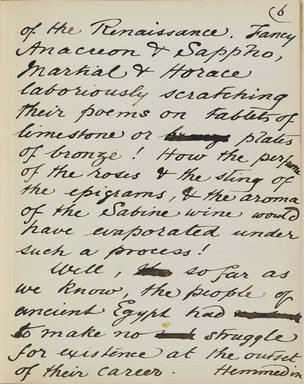 (6
of the Renaissance. Fancy
Anacreon & Sappho,
Martial & Horace
laboriously scratching
their poems on tablets of
limestone or plates
of bronze! How the perfume
of the roses & the sting of
the epigrams, & the aroma
of the Sabine wine would
have evaporated under
such a process!
Well, so far as
we know, the people of
ancient Egypt had
to make no struggle
for existence at the outset
of their career. Hemmed in